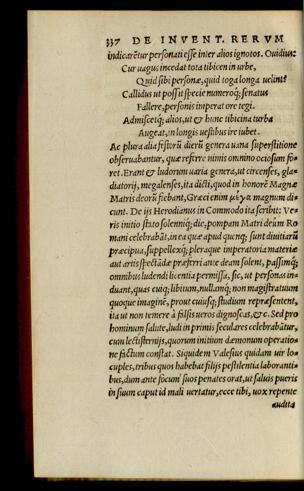 337 DE INVENT. RERVM
indicarẽtur personati esse inter alios ignotos. Ouidius:
Cur uagus incedat tota tibicen in urbe,
Quid sibi personæ, quid toga longa uelint?
Callidus ut possit specie numeroq; senatus
Fallere, personis imperat ore tegi.
Admiscetq; alios, ut & hunc tibicina turba
Augeat, in longis uestibus ire iubet.
Ac plura alia festorũ dierũ genera uana superstitione
obseruabantur, quæ referre nimis omnino ociosum fo-
ret. Erant & ludorum uaria genera, ut circenses, gla-
diatorij, megalenses, ita dicti, quod in honorẽ Magnæ
Matris deorũ fiebant, Græci enim μέγα magnum di-
cunt. De ijs Herodianus in Commodo ita scribit: Ve-
ris initio stato solenniq; die, pompam Matri deũm Ro
mani celebrabãt, in ea quæ apud quenq; sunt diuitiarũ
præcipua, suppellexq; pleraque imperatoria materiæ
aut artis spectãdæ præferri ante deam solent, passimq;
omnibus ludendi licentia permissa, sic, ut personas in-
duant, quas cuiq; libitum, nullamq; non magistratuum
quoque imaginẽ, prout cuiusq; studium repræsentent,
ita ut non temere à falsis ueros dignoscas, &c. Sed pro
hominum salute, ludi in primis seculares celebrabãtur,
cum lectisternijs, quorum initium dæmonum operatio-
ne factum constat. Siquidem Valesius quidam uir lo-
cuples, tribus quos habebat filijs pestilentia laboranti-
bus, dum ante focum suos penates orat, ut saluis pueris
in suum caput id mali uertatur, ecce tibi, uox repente
audita